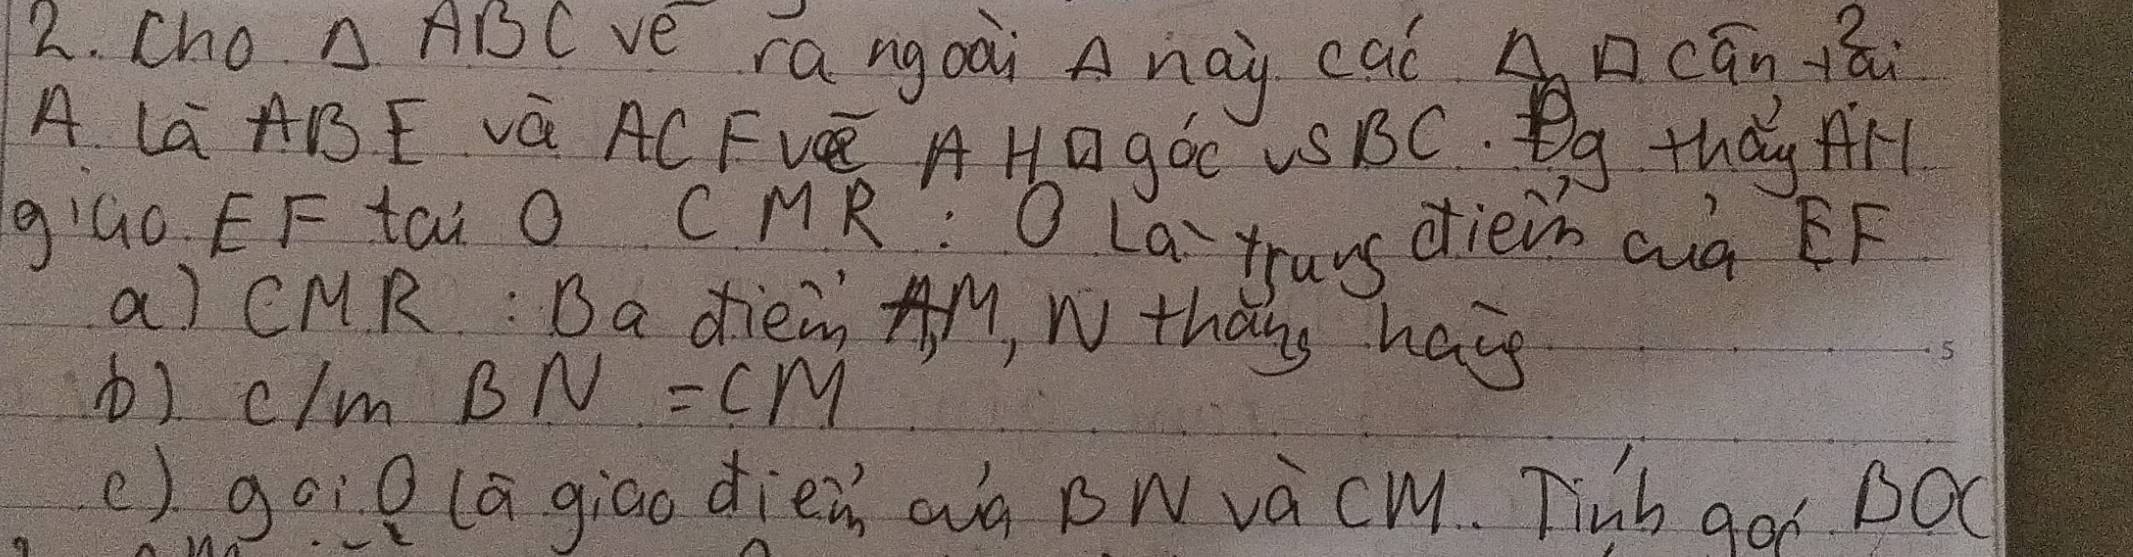 2. Cho Δ ABC vẽ ra ngoài Δ này các Δ □ cân tại
A là ABE và ACF vẽ AH □ góc vs BC. Đg thẳng AH
giao EF tại O CMR: O Là trung điểm của EF
a) CMR: Ba điểm A, M, N thẳng hàng
b) c/m BN = CM
c) gọi O là giao điểm của BN và CM. Tính góc BOC